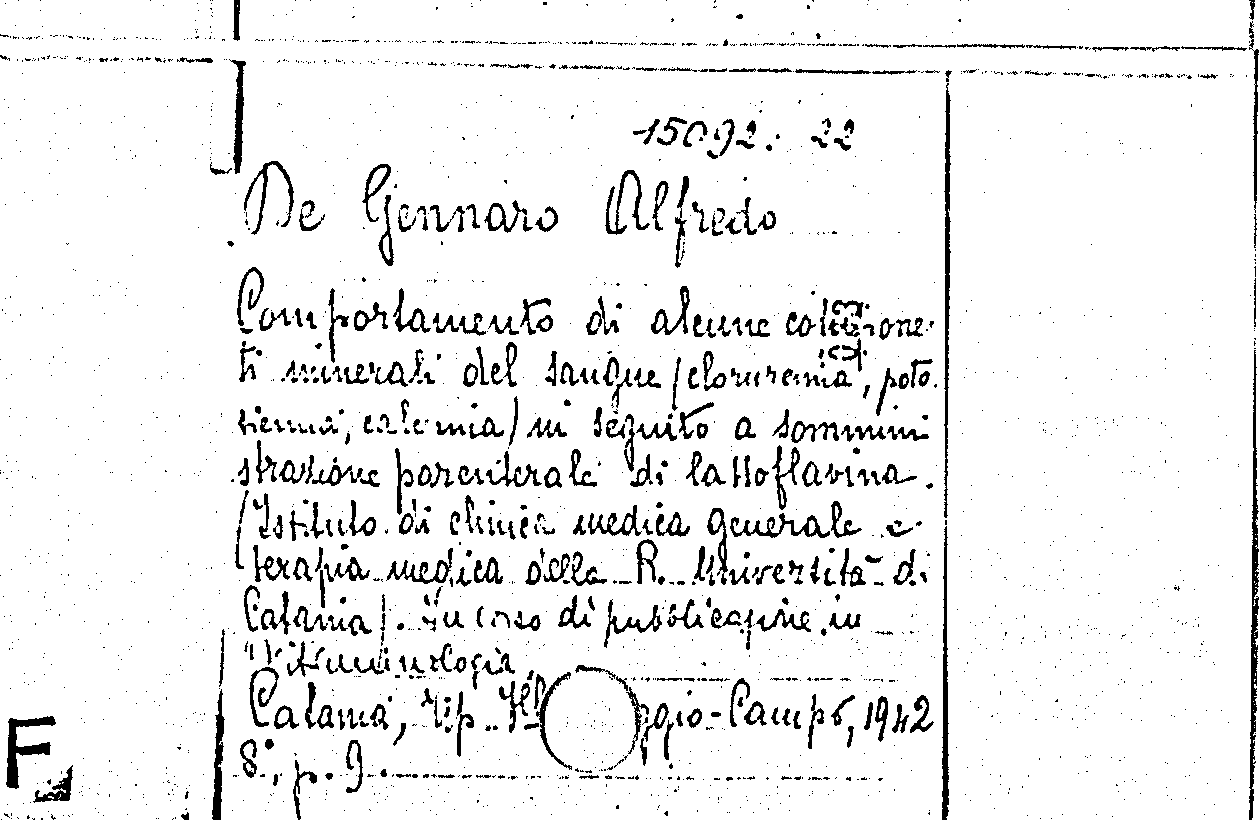 15092. 22
De Gennaro Alfredo
Comportamento di alcune
ti minerali del sangue (cloruremia, pota
siemia, calcemia) in seguito a sommini
strazione parenterale di lattoflavina.
(Istituto di clinica medica generale e
terapia medica della R. Università di
Catania). In corso di pubblicazione in
"Vitaminologia
Catania, Tip. ggio-Campo, 1942
8°, p. 9.
F